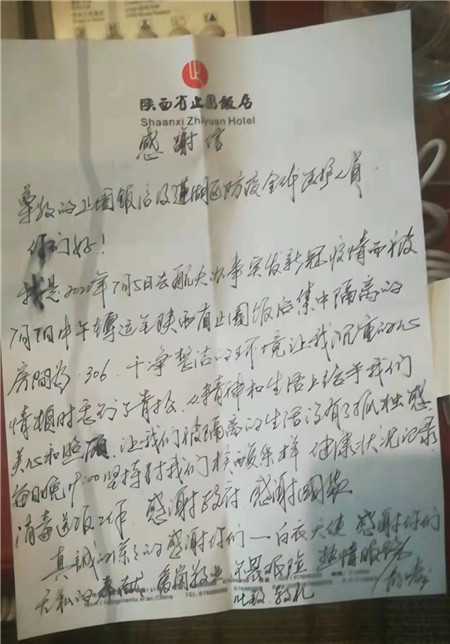 陕西省止園飯店
Shaanxi Zhiyuan Hotel
感谢信
尊敬的止園饭店及莲湖区防疫全体医护人员
你们好！
我是2022年7月5日去航天办事突发新冠疫情而被
7月7日中午转运至陕西省止園饭店集中隔离的
房间为·306．干净整洁的环境让我沉重的心
情顿时感到了幸福．从精神和生活上给予我们
关心和照顾，让我们被隔离的生活没有了孤独感
每日晚 坚持对我们核酸采样 健康状况记录
消毒送饭工作 感谢政府 感谢国家
真诚的 的感谢你们—白衣天使 感谢你们
无私的奉献 爱岗敬业 不畏艰险 热情服务
此致 敬礼